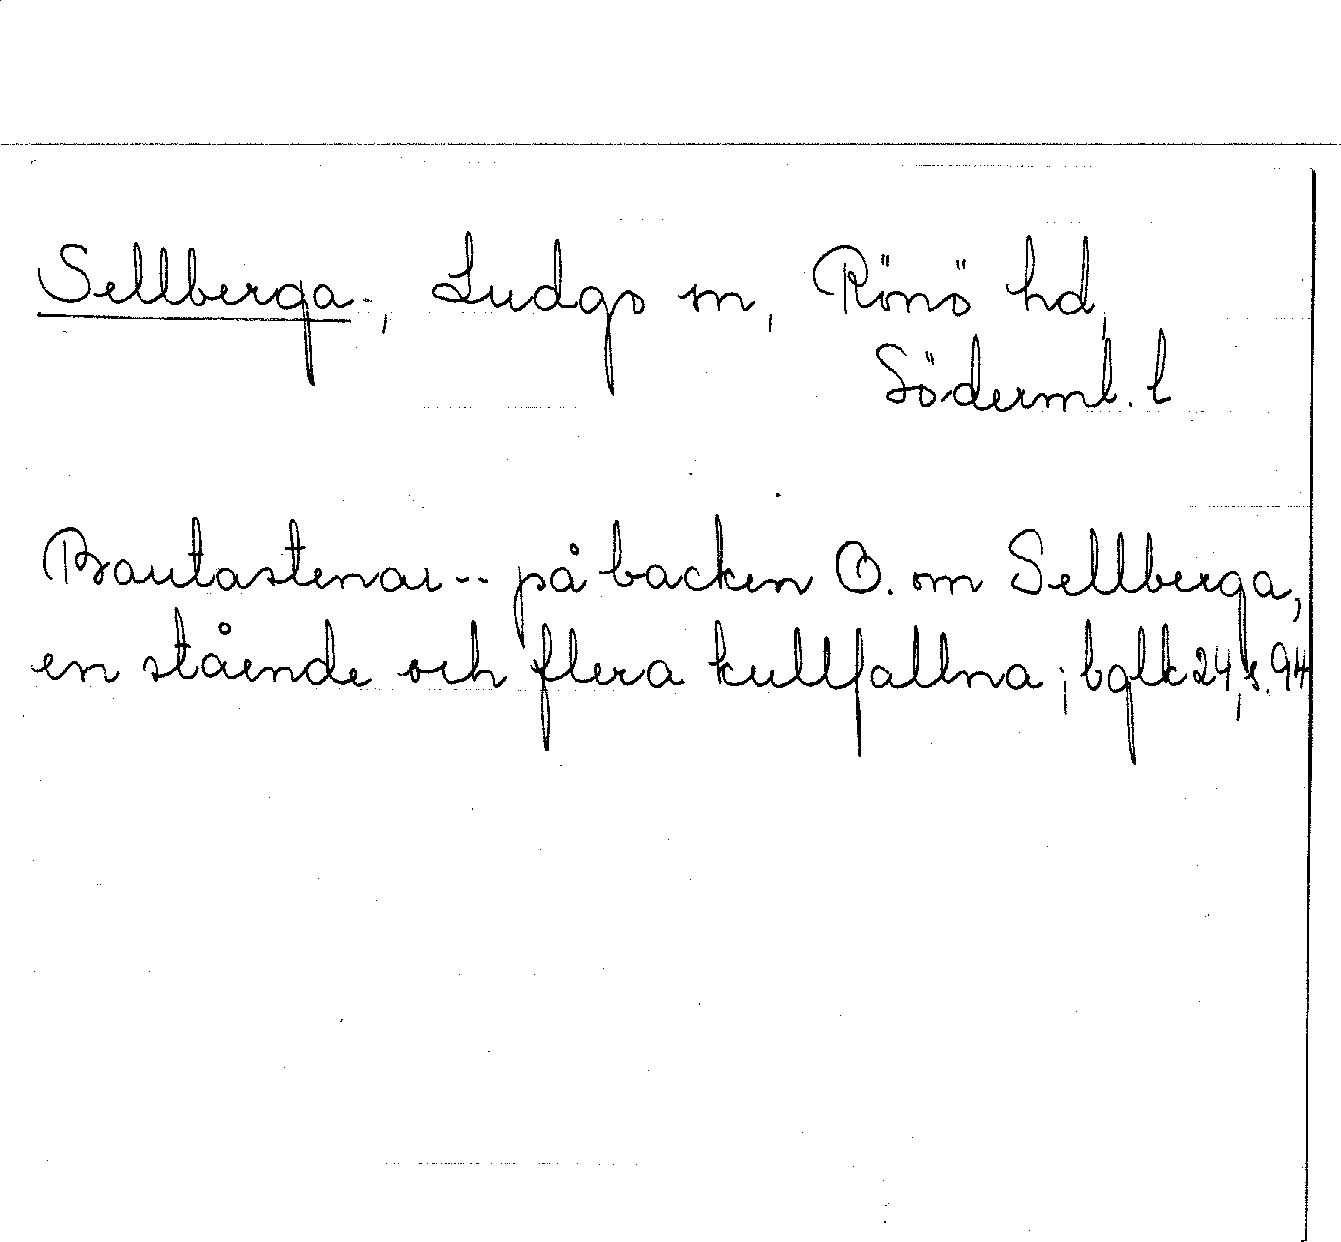 Sellberga, Ludgo sn, Rönö hd,
Söderml. l
Bautastenar -- på backen O. om Sellberga,
en stående och flera kullfallna; bglk 24, s. 94